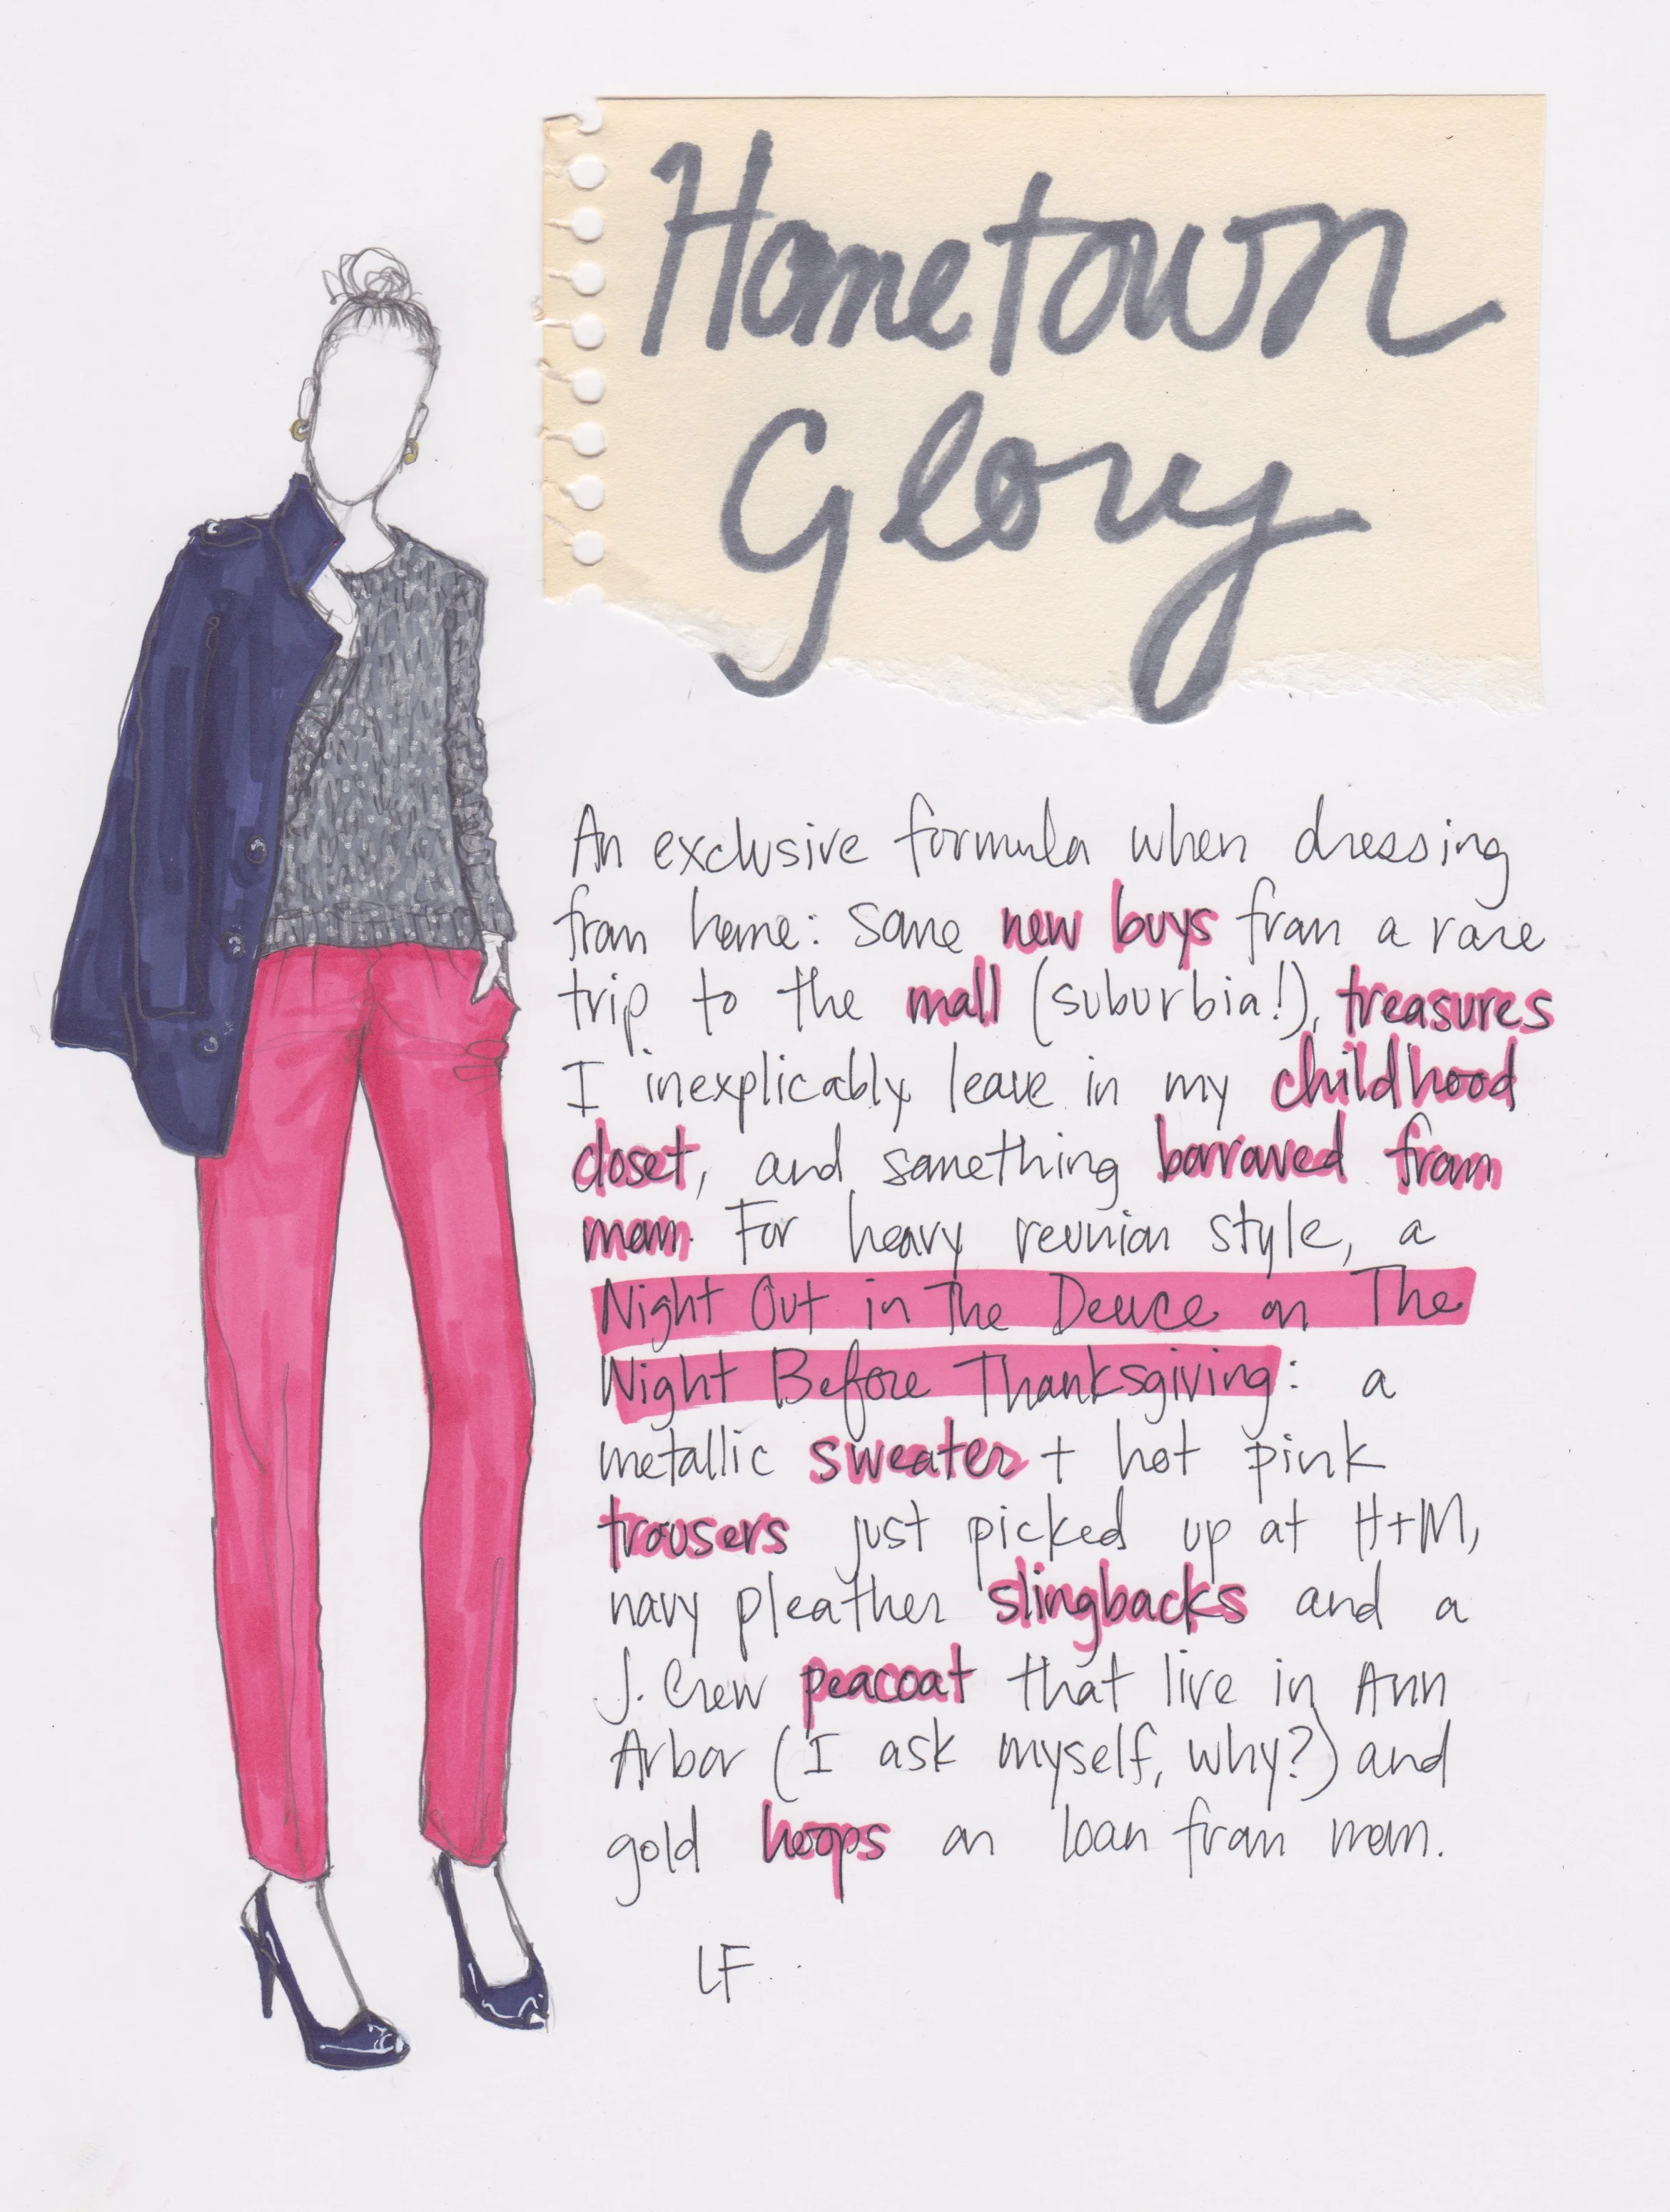 Hometown
Glory
An exclusive formula when dressing
from home: some new buys from a rare
trip to the mall (suburbia!), treasures
I inexplicably leave in my childhood
closet, and something borrowed from
mom. For heavy reunion style, a
Night Out in The Deuce on The
Night Before Thanksgiving: a
metallic sweater + hot pink
trousers just picked up at H+M,
navy pleather slingbacks and a
J. Crew peacoat that live in Ann
Arbor (I ask myself, why?) and
gold hoops on loan from mom.
LF